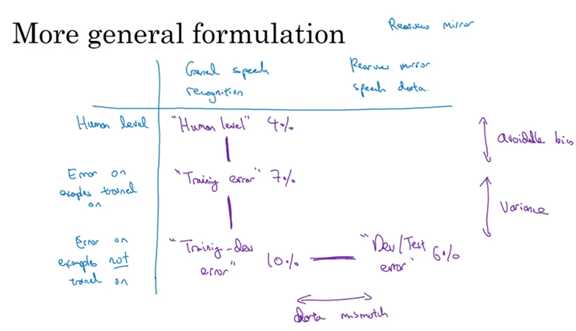 More general formulation
Rearview mirror
General speech
recognition
Rearview mirror
speech data
Human level
"Human level" 4%
avoidable bias
Error on
examples trained
on
"Training error" 7%
Variance
Error on
examples not
trained on
"Training-dev
error" 10%
"Dev/Test
error" 6%
data mismatch